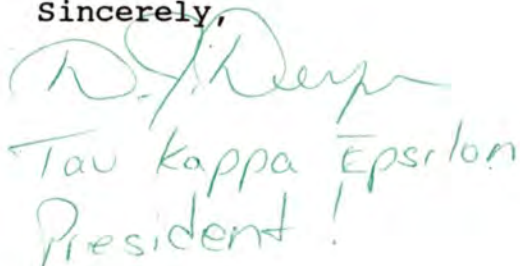 Sincerely,
Tau Kappa Epsilon
President!